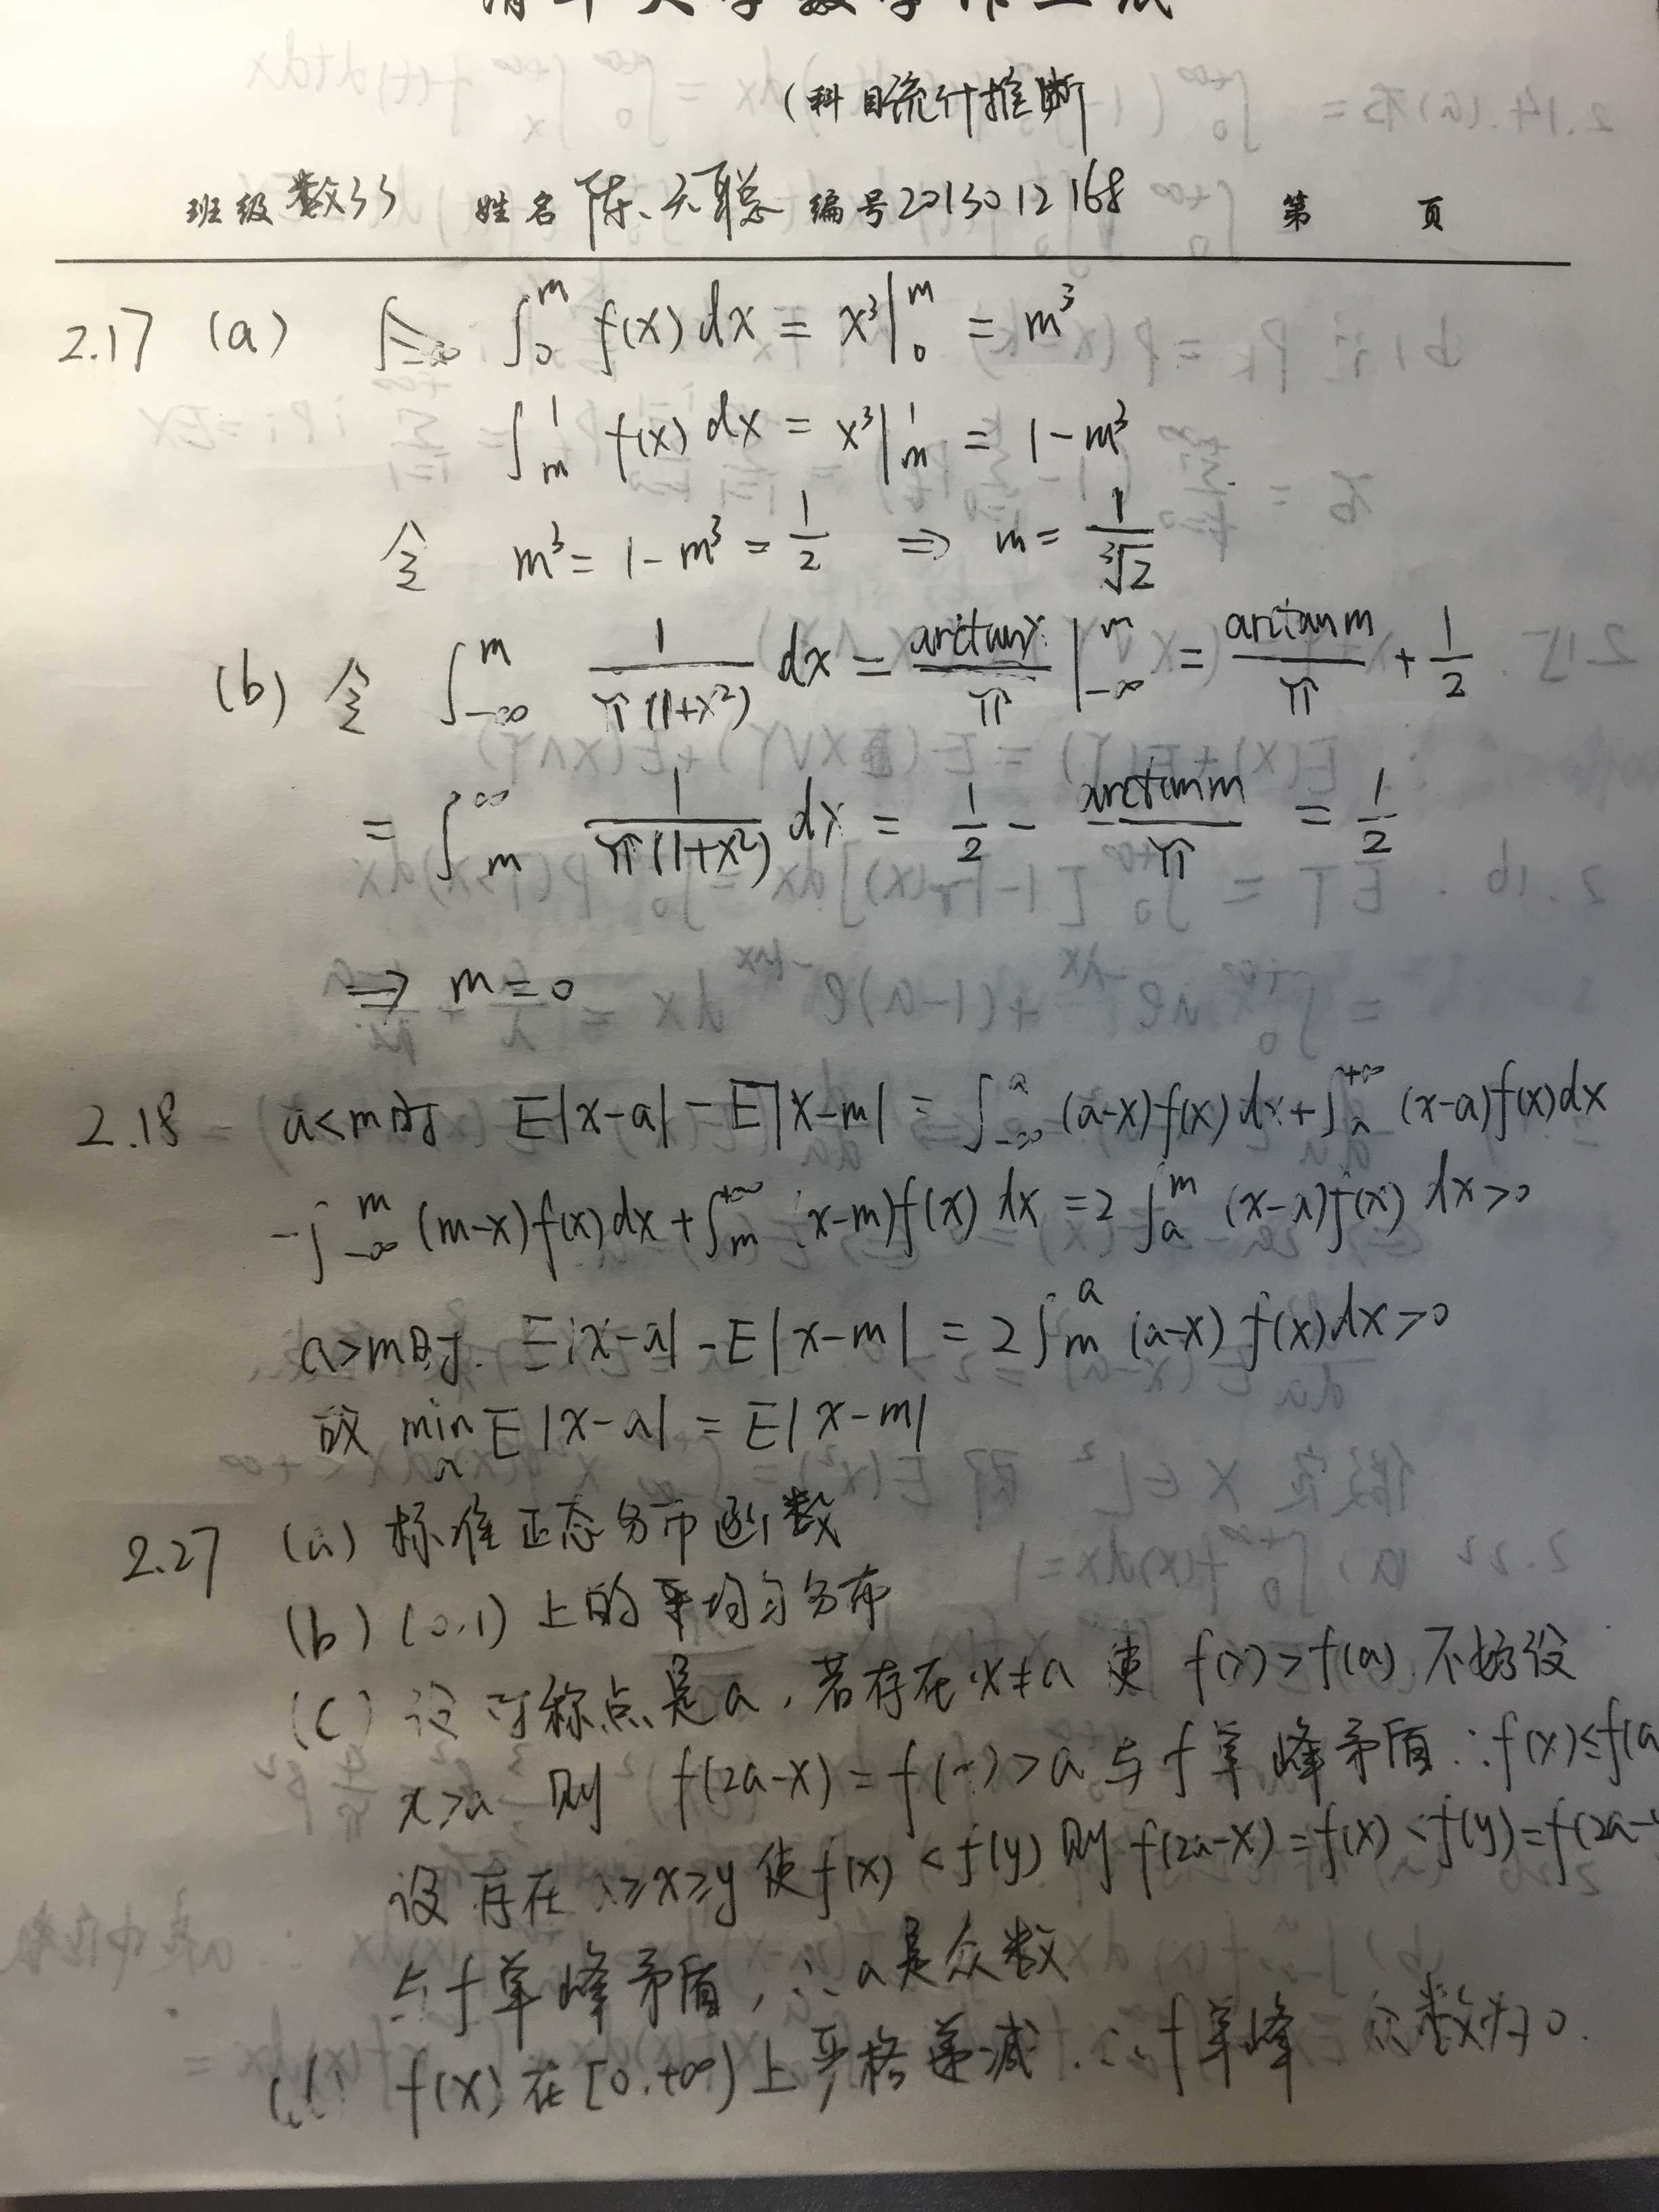 清华大学数学作业纸
(科目统计推断
班级 数33 姓名 陈天聪 编号2013012168 第 页
2.17 (a) ∫_0^m f(x)dx = x³|_0^m = m³
∫_m^1 f(x)dx = x³|_m^1 = 1-m³
令 m³ = 1-m³ = 1/2 ⇒ m = 1/∛2
(b) 令 ∫_{-∞}^m 1/(π(1+x²)) dx = arctanx/π |_{-∞}^m = arctanm/π + 1/2
= ∫_m^∞ 1/(π(1+x²)) dx = 1/2 - arctanm/π = 1/2
⇒ m=0
2.18 a<m时 E|x-a| - E|x-m| = ∫_{-∞}^a (a-x)f(x)dx + ∫_a^{+∞} (x-a)f(x)dx
-∫_{-∞}^m (m-x)f(x)dx + ∫_m^{+∞} (x-m)f(x)dx = 2∫_a^m (x-a)f(x)dx>0
a>m时. E|x-a| - E|x-m| = 2∫_m^a (a-x)f(x)dx>0
故 min_a E|x-a| = E|x-m|
2.27 (a) 标准正态分布函数
(b) (0,1) 上的平均匀分布
(c) 设对称点是a, 若存在 x≠a 使 f(x)>f(a) 不妨设
x>a 则 f(2a-x) = f(x)>a 与f单峰矛盾 ∴f(x)≤f(a
设存在 ≥x≥y 使 f(x)<f(y) 则 f(2a-x)=f(x)<f(y)=f(2a-y
与f单峰矛盾, ∴a是众数
f(x) 在 [0,+∞) 上严格递减 ∴f单峰 众数为0.